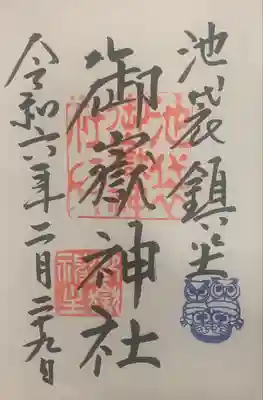 池袋鎮坐
御嶽神社
令和六年二月二十九日